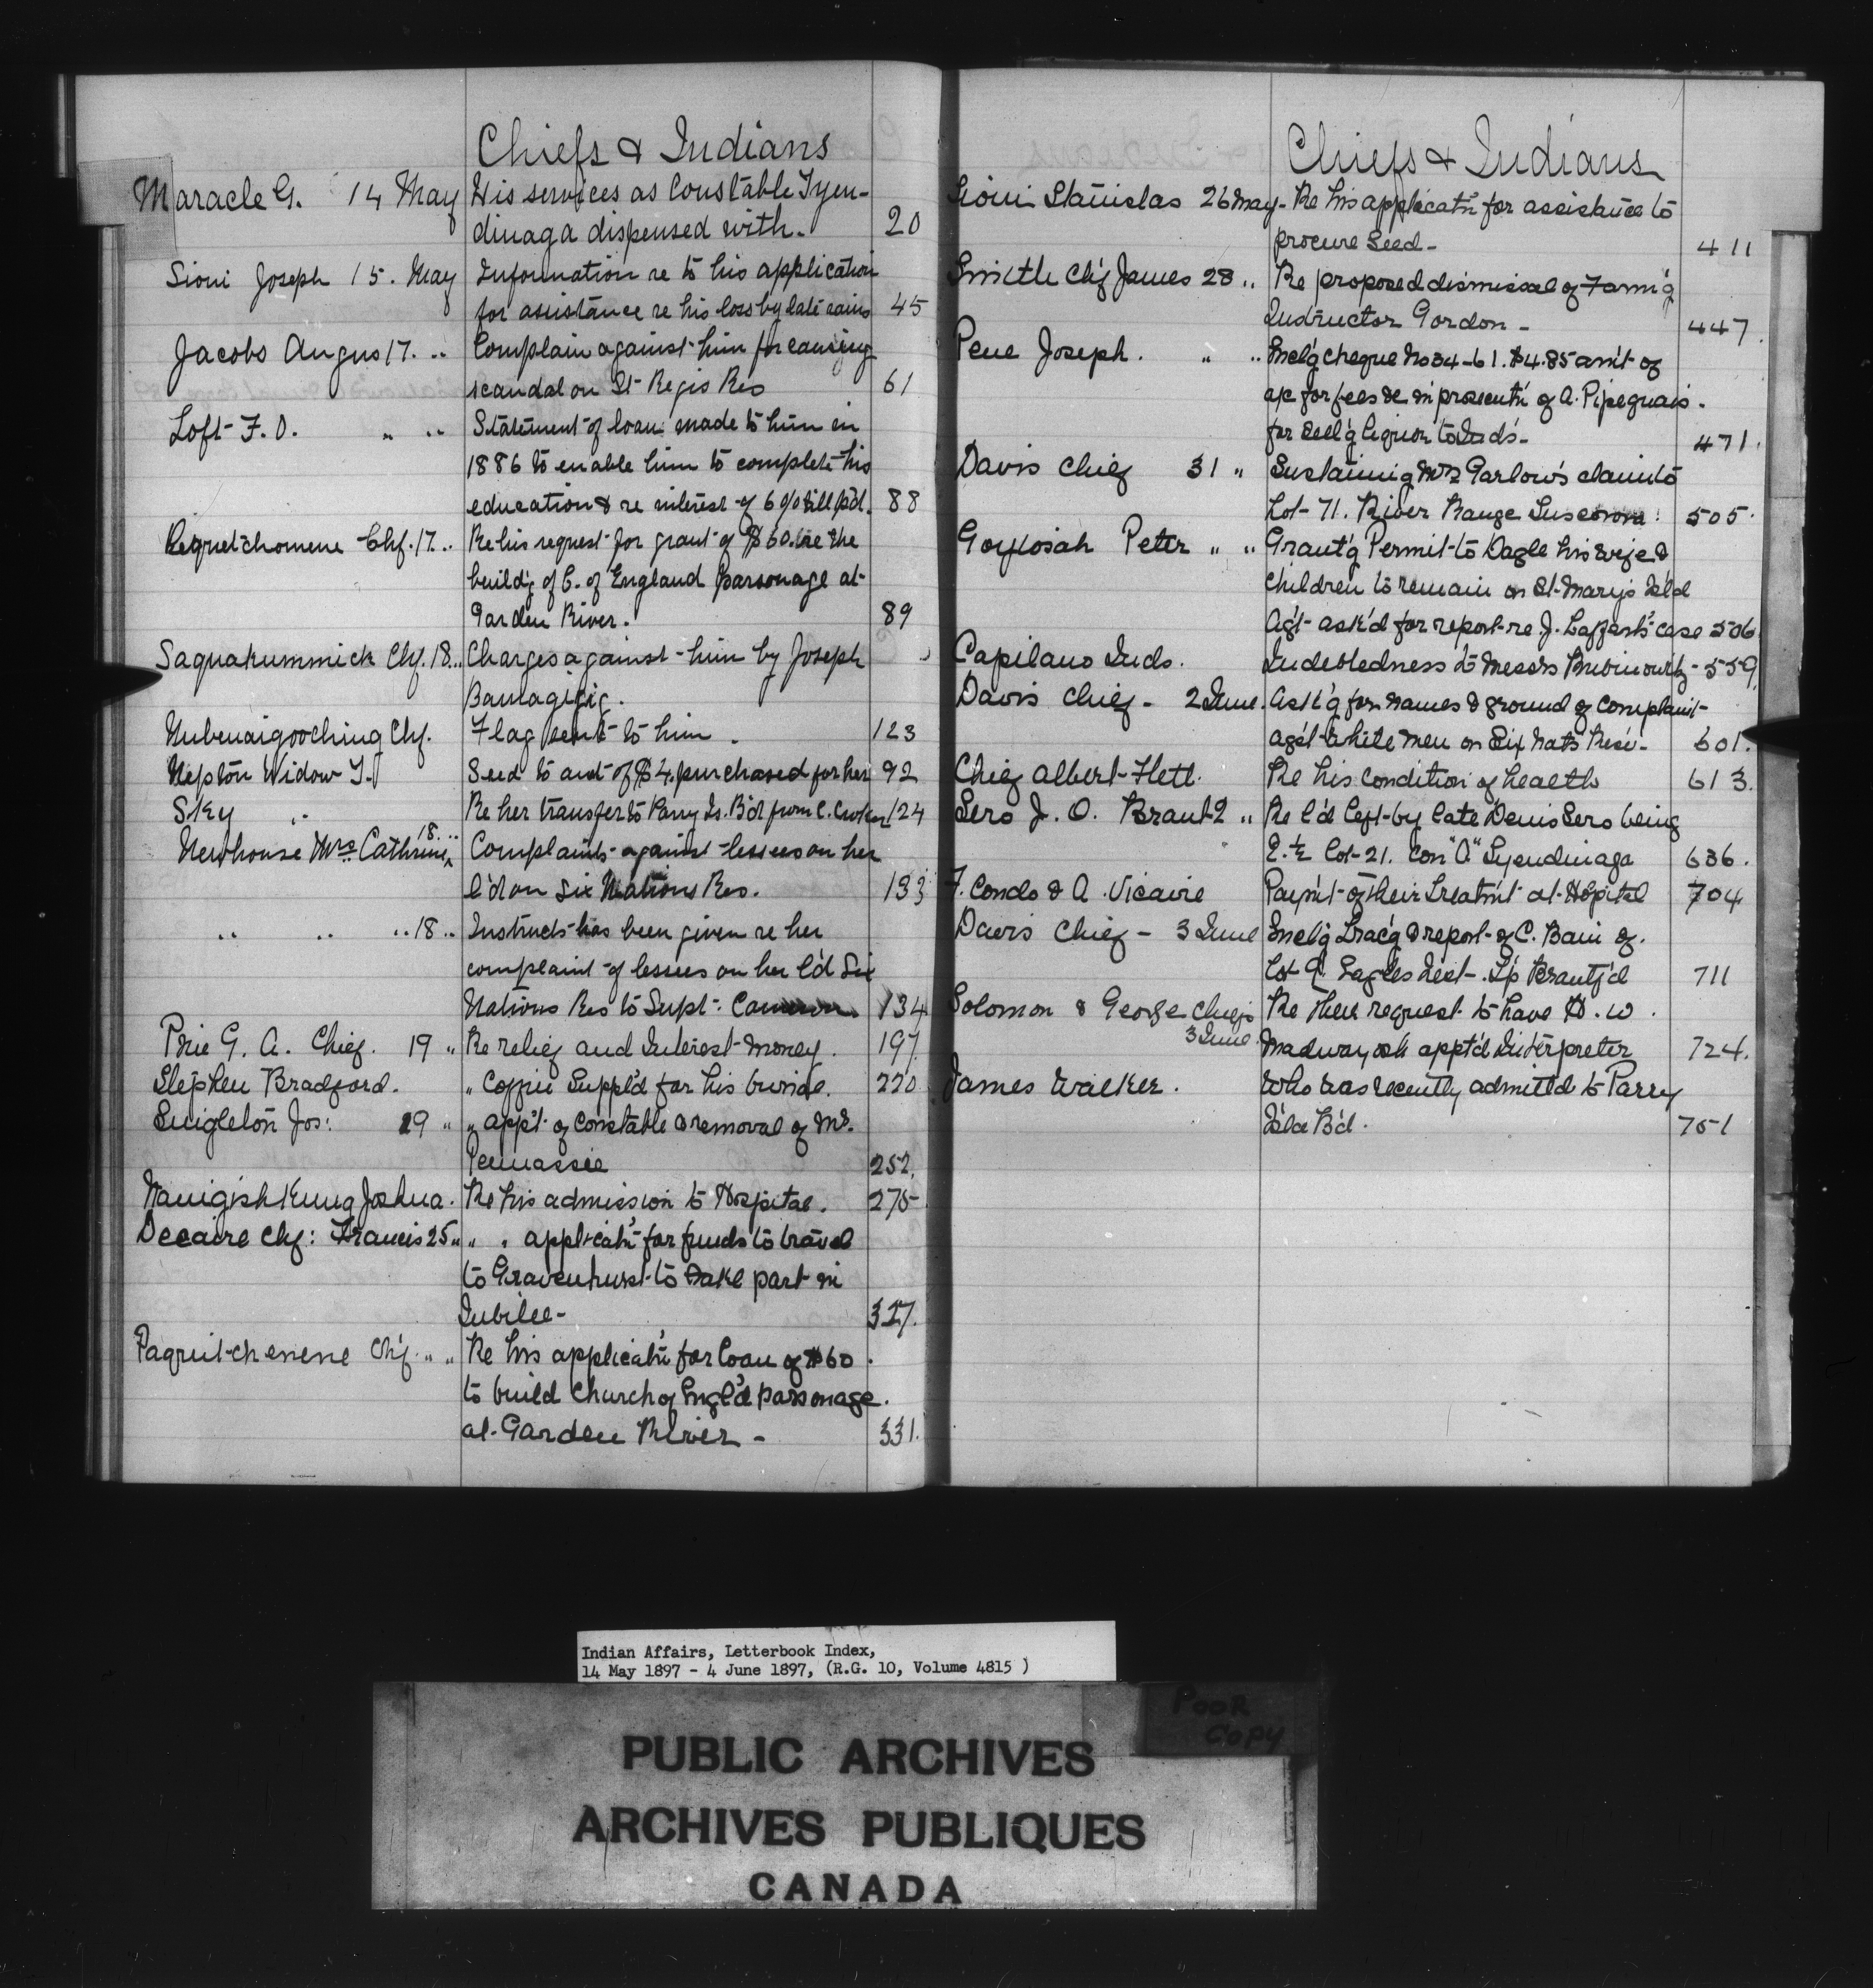 Chiefs & Indians
Maracle G. 14 May His services as Constable Tyen-
dinaga dispensed with. 20
Sioui Joseph 15. May Information re to his application
for assistance re his loss by late rains 45
Jacobs Angus 17. .. Complain against him for causing
scandal on St Regis Res 61
Loft F. O. " .. Statement of loan made to him in
1886 to enable him to complete his
education & re interest of 6 % till p'd. 88
Chf. 17.. Re his request for grant of $60. re the
build'g of C. of England parsonage at
Garden River. 89
Saquakummick Chf. 18.. Charges against him by Joseph
Bamagigig.
Nubenaigooching Chf. Flag sent to him. 123
Nepton Widow T. Seed to amt of $4. purchased for her 92
Sky .. Re her transfer to Parry Is. B'd from C. Croker 124
Newhouse Mrs Cathrine 18... Complaints against lessees on her
l'd on Six Nations Res. 133
.. .. .. 18 .. Instructs has been given re her
complaint of lessees on her l'd Six
Nations Res to Supt. Cameron 134
G. A. Chief. 19 " Re relief and Interest money. 197
Stephen Bradford. " Coffin Suppl'd for his burial. 220
Singleton Jos: 19 " " app't of constable & removal of Mr.
Pennassie 252.
Nanigishkung Joshua. Re his admission to Hospital. 275
Decaire Chf: Francis 25 " " " applicat'n for funds to travel
to Gravenhurst to take part in
Jubilee- 327.
Paquitchenene Chf. " " Re his applicat'n for loan of $60.
to build Church of Engl'd parsonage.
at Garden River - 331.
Chiefs & Indians
Sioui Stanislas 26 May- Re his applicat'n for assistance to
procure Seed- 411
Smith Ch'f James 28 .. Re proposed dismissal of Farm'g
Instructor Gordon - 447.
Pene Joseph. " .. Encl'g cheque No 34-61. $4.85 am't of
a/c for fees &c in prosecut'n of A. Pipequais.
for sell'g liquor to Inds- 471.
Davis Chief 31 " Sustaining Mrs Garlow's claim to
Lot 71. River Range Tuscorora. 505.
Peter " .. Grant'g Permit to Dagle his wife &
children to remain on St. Mary's Isl'd
Ag't ask'd for report re J. case 506
Capilano Inds. Indebtedness to Messrs - 559
Davis Chief - 2 June. Ask'g for names & ground of complaint
agst white men on Six Nat's Res. - 601.
Chief Albert Flett. Re his condition of health 613.
Sero J. O. Brant 2 " Re l'd left by late Denis Sero being
E. ½ lot 21. Con "A" Tyendinaga 636.
F. Condo & A. Vicaire Paym't of their treatm't at Hopital 704
Davis Chief - 3 June Encl'g trac'g & report of C. Bain of.
Lot 9. Eagles Nest. T'p Brantf'd 711
Solomon & George Chiefs Re their request to have D. W.
3 June. Madwayosh appt'd Interpreter 724.
James Walker. Who was recently admitted to Parry
Isl'd B'd. 751
Indian Affairs, Letterbook Index,
14 May 1897 - 4 June 1897, (R.G. 10, Volume 4815 )
POOR
COPY
PUBLIC ARCHIVES
ARCHIVES PUBLIQUES
CANADA